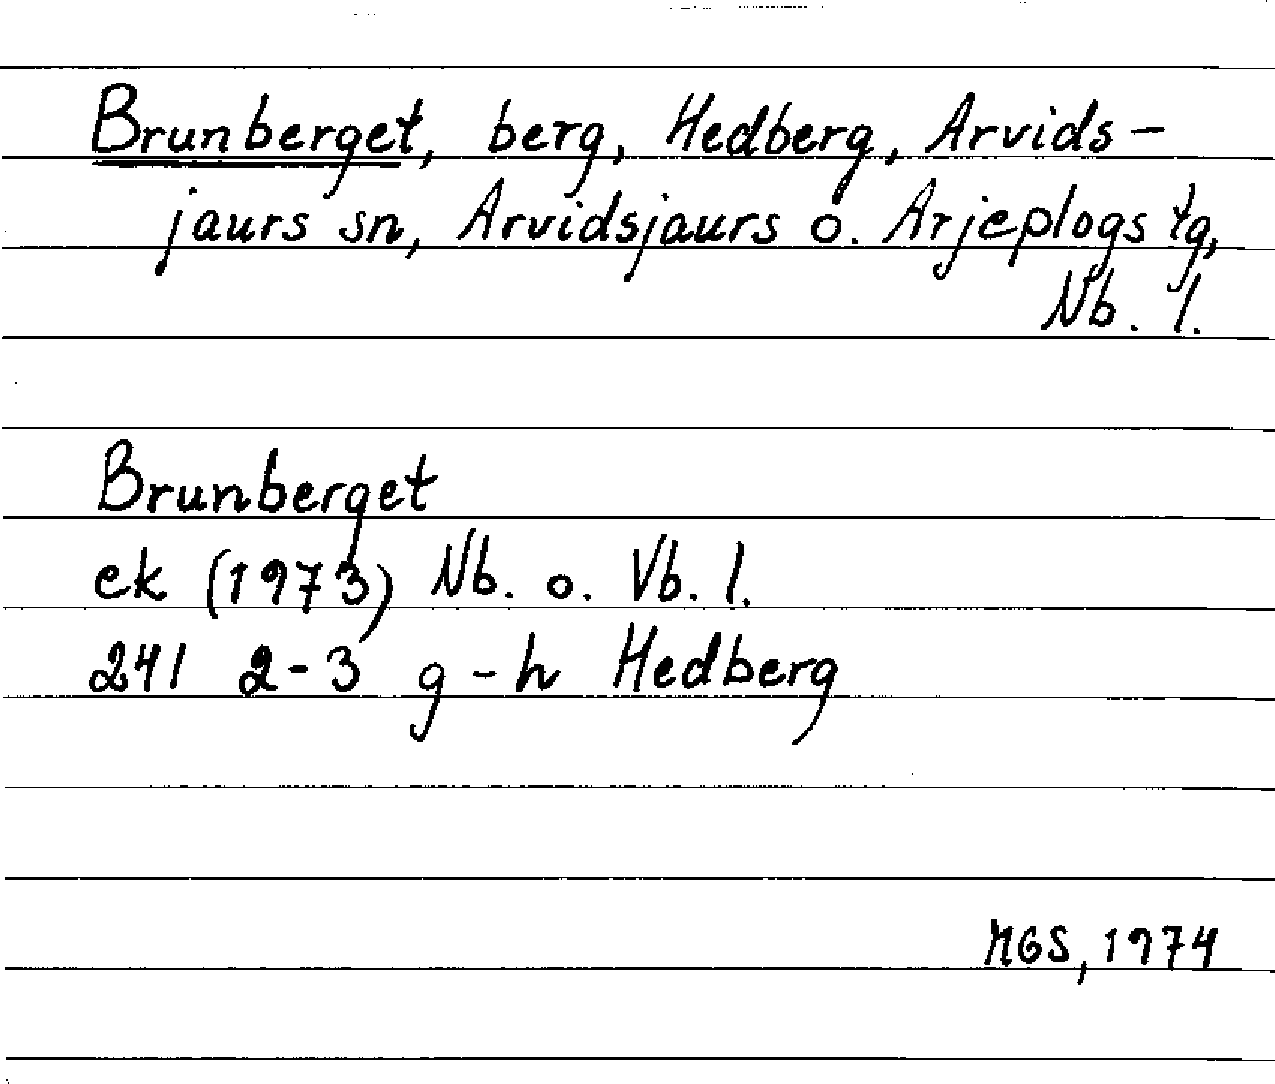 Brunberget, berg, Hedberg, Arvids-
jaurs sn, Arvidsjaurs o. Arjeplogs tg,
Nb. l.
Brunberget
ek (1973) Nb. o. Vb. l.
241 2-3 g-h Hedberg
MGS, 1974